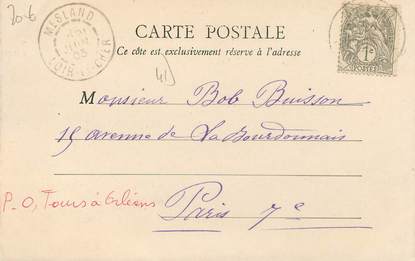 20-6
MESLAND
LOIR-&-CHER
CARTE POSTALE
Ce côté est exclusivement réservé à l'adresse
1c
POSTES
41
Monsieur Bob Buisson
15 avenue de La Bourdonnais
P-O, Tours à Orléans
Paris 7e